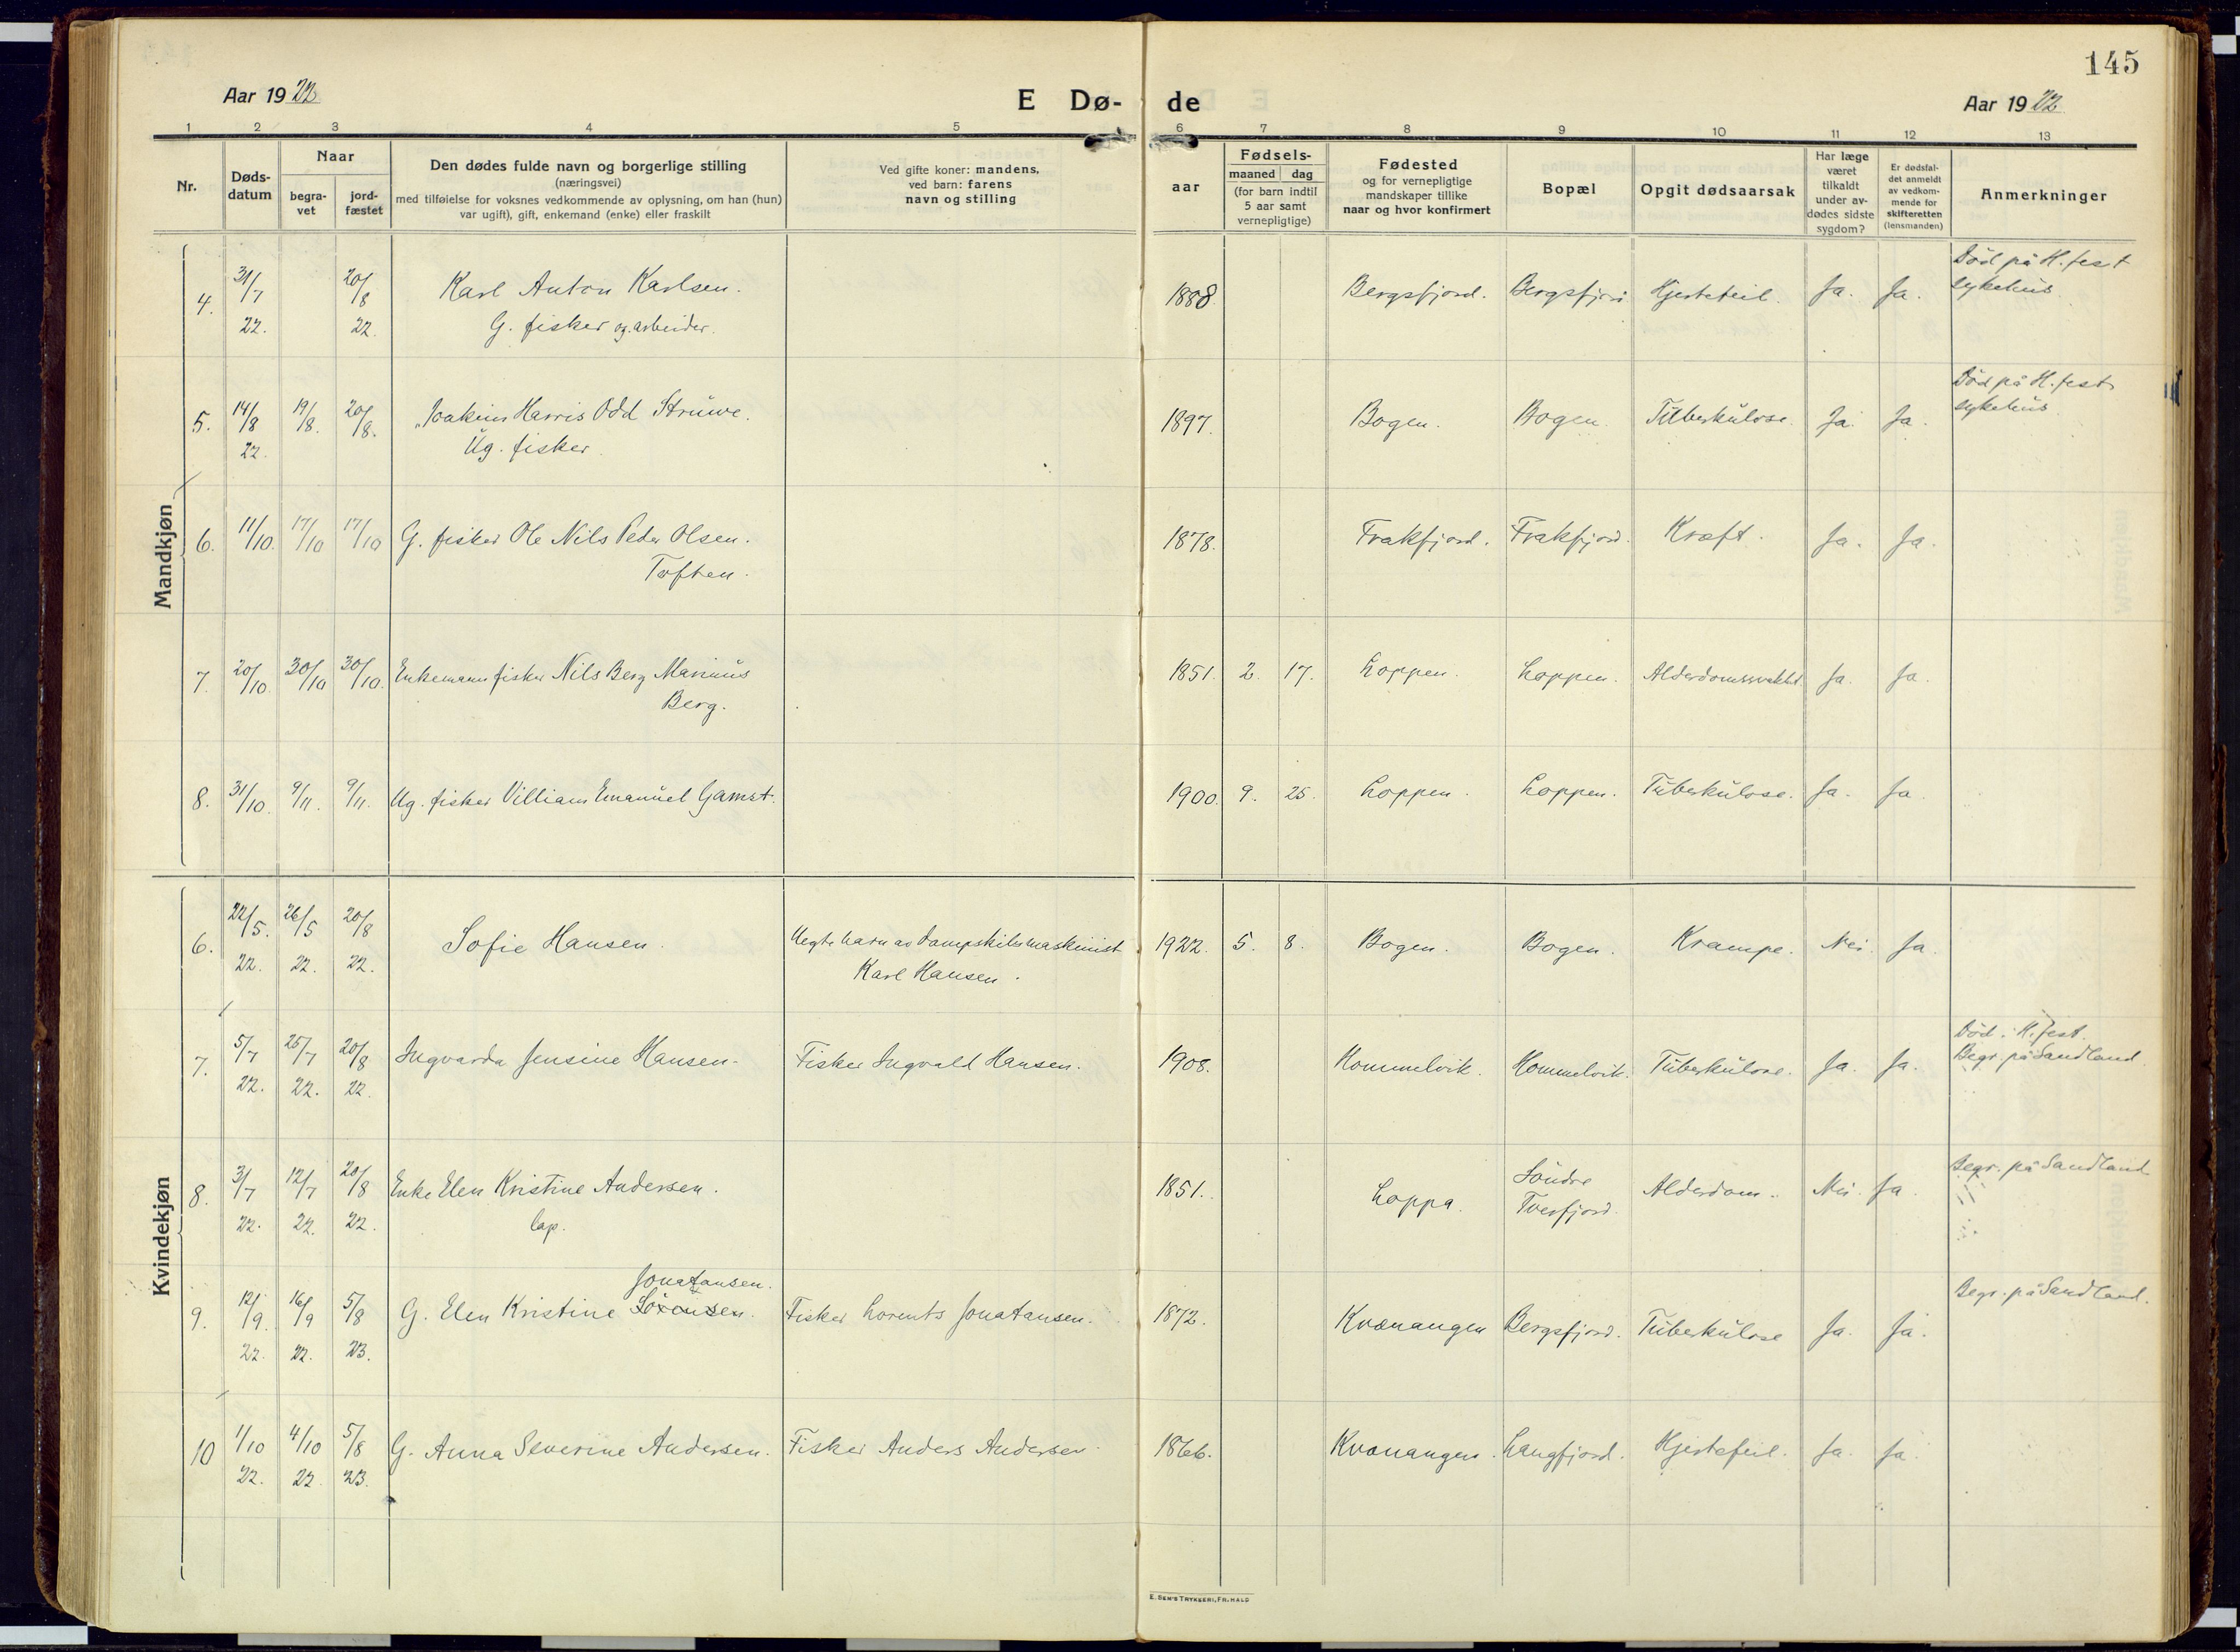 145
Aar 1922
E Dø-
de
Aar 1922
1 2 3 4 5 6 7 8 9 10 11 12 13
Nr.
Døds-
datum
Naar
begra-
vet
jord-
fæstet
Den dødes fulde navn og borgerlige stilling
(næringsvei)
med tilføielse for voksnes vedkommende av oplysning, om han (hun)
var ugift), gift, enkemand (enke) eller fraskilt
Ved gifte koner: mandens,
ved barn: farens
navn og stilling
aar
Fødsels-
maaned dag
(for barn indtil
5 aar samt
vernepligtige)
Fødested
og for vernepligtige
mandskaper tillike
naar og hvor konfirmert
Bopæl
Opgit dødsaarsak
Har læge
været
tilkaldt
under av-
dødes sidste
sygdom?
Er dødsfal-
det anmeldt
av vedkom-
mende for
skifteretten
(lensmanden)
Anmerkninger
Mandkjøn
4. 31/7 22. 20/8 22. Karl Anton Karlsen.
G. fisker og arbeider.
1888 Bergsfjord. Bergsfjord Hjertefeil. Ja. Ja. Död på H.fest
sykehus
5. 14/8 22. 19/8. 20/8. Joakim Harris Odd Strüwe.
Ug. fisker
1897. Bogen. Bogen. Tüberkülose. Ja. Ja. Död på H.fest
sykehus
6. 11/10. 17/10 17/10 G. fisker Ole Nils Peder Olsen.
Toften.
1878. Frakfjord. Frakfjord. Kræft. Ja. Ja.
7. 20/10. 30/10 30/10. Enkemann fisker Nils Berg Marinüs
Berg.
1851. 2. 17. Loppen. Loppen. Alderdomssvakhet Ja. Ja.
8. 31/10. 9/11. 9/11. Ug. fisker Villiam Emanüel Gamst.
1900. 9. 25. Loppen. Loppen. Tüberkülose. Ja. Ja.
Kvindekjøn
6. 22/5. 22. 26/5 22. 20/8 22. Sofie Hansen. Uegte barn av Dampskibsmaskinist
Karl Hansen.
1922. 5. 8. Bogen. Bogen. Krampe. Nei. Ja.
7. 5/7 22. 25/7 22. 20/8 22. Ingvarda Jensine Hansen. Fisker Ingvald Hansen.
1908. Hommelvik. Hommelvik. Tüberkülose. Ja. Ja. Död i H.fest.
Begr. på Sandland.
8. 3/7 22. 12/7 22. 20/8 22. Enke Elen Kristine Andersen.
lap.
1851. Loppa. Söndre
Tverfjord. Alderdom. Nei. Ja. Begr. på Sandland
9. 12/9. 22. 16/9 22. 5/8 23. Jonatansen.
G. Elen Kristine Sörensen. Fisker Lorents Jonatansen.
1872. Kvænangen Bergsfjord. Tüberkülose Ja. Ja. Begr. på Sandland.
10 1/10 22. 4/10 22 5/8 23. G. Anna Severine Andersen. Fisker Anders Andersen
1866. Kvænangen. Langfjord. Hjertefeil. Ja. Ja.
E. SEM'S TRYKKERI, FR.HALD